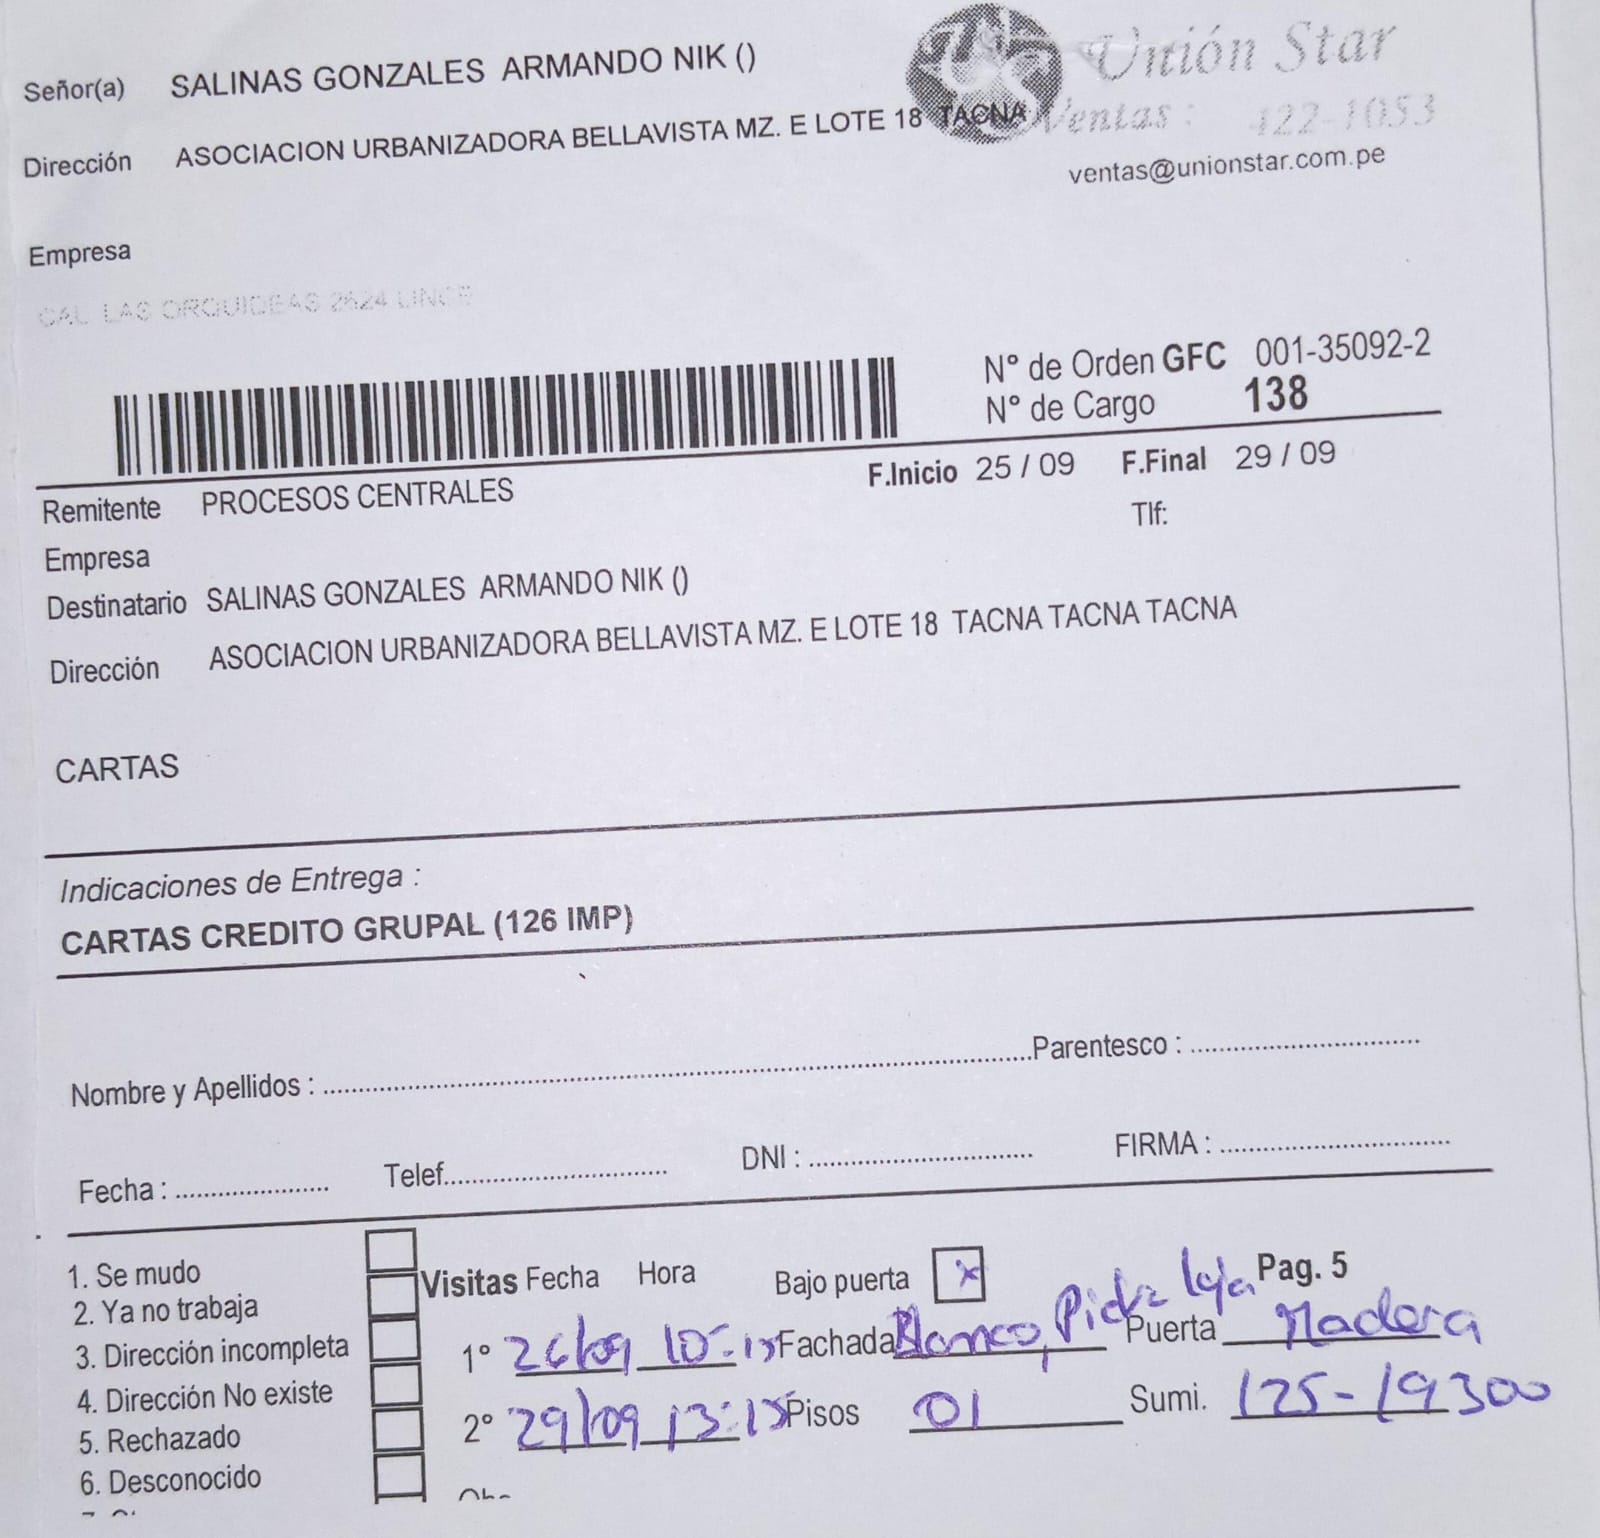 Señor(a) SALINAS GONZALES ARMANDO NIK ()
Unión Star
Dirección ASOCIACION URBANIZADORA BELLAVISTA MZ. E LOTE 18 TACNA
Ventas : 422-1053
ventas@unionstar.com.pe
Empresa
CAL LAS ORQUIDEAS 2624 LINCE
N° de Orden GFC 001-35092-2
N° de Cargo 138
F.Inicio 25 / 09 F.Final 29 / 09
Remitente PROCESOS CENTRALES
Tlf:
Empresa
Destinatario SALINAS GONZALES ARMANDO NIK ()
Dirección ASOCIACION URBANIZADORA BELLAVISTA MZ. E LOTE 18 TACNA TACNA TACNA
CARTAS
Indicaciones de Entrega :
CARTAS CREDITO GRUPAL (126 IMP)
Nombre y Apellidos : Parentesco :
Fecha : Telef. DNI : FIRMA :
1. Se mudo
2. Ya no trabaja
3. Dirección incompleta
4. Dirección No existe
5. Rechazado
6. Desconocido
Visitas Fecha Hora Bajo puerta x Pag. 5
1° 26/09 10:15 Fachada Blanco, Puerta Madera
2° 29/09 13:15 Pisos 01 Sumi. 125-19300